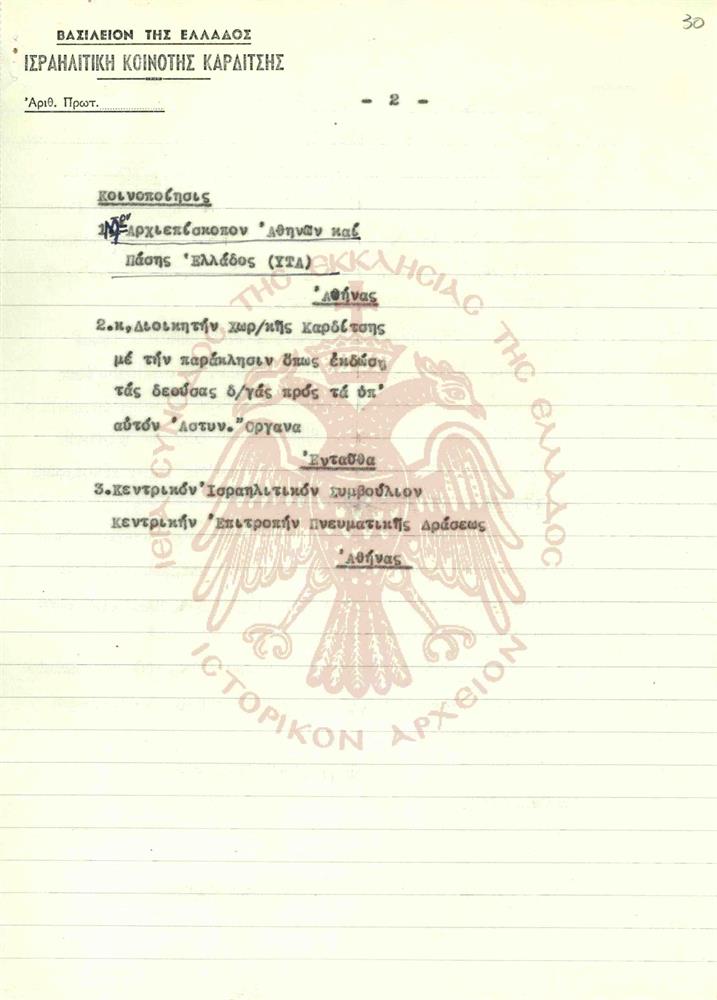 30
ΒΑΣΙΛΕΙΟΝ ΤΗΣ ΕΛΛΑΔΟΣ
ΙΣΡΑΗΛΙΤΙΚΗ ΚΟΙΝΟΤΗΣ ΚΑΡΔΙΤΣΗΣ
Ἀριθ. Πρωτ.
- 2 -
Κοινοποίησις
Ἀρχιεπίσκοπον Ἀθηνῶν καί
Πάσης Ἑλλάδος (ΥΤΑ)
Ἀθήνας
2.κ,Διοικητήν Χωρ/κῆς Καρδίτσης
μέ τήν παράκλησιν ὅπως ἐκδώσῃ
τάς δεούσας δ/γάς πρός τά ὑπ'
αὐτόν Ἀστυν.Ὄργανα
Ἐνταῦθα
3.Κεντρικόν Ἰσραηλιτικόν Συμβούλιον
Κεντρικήν Ἐπιτροπήν Πνευματικῆς Δράσεως
Ἀθήνας
ΙΕΡΑ ΣΥΝΟΔΟΣ ΤΗΣ ΕΚΚΛΗΣΙΑΣ ΤΗΣ ΕΛΛΑΔΟΣ
ΙΣΤΟΡΙΚΟΝ ΑΡΧΕΙΟΝ